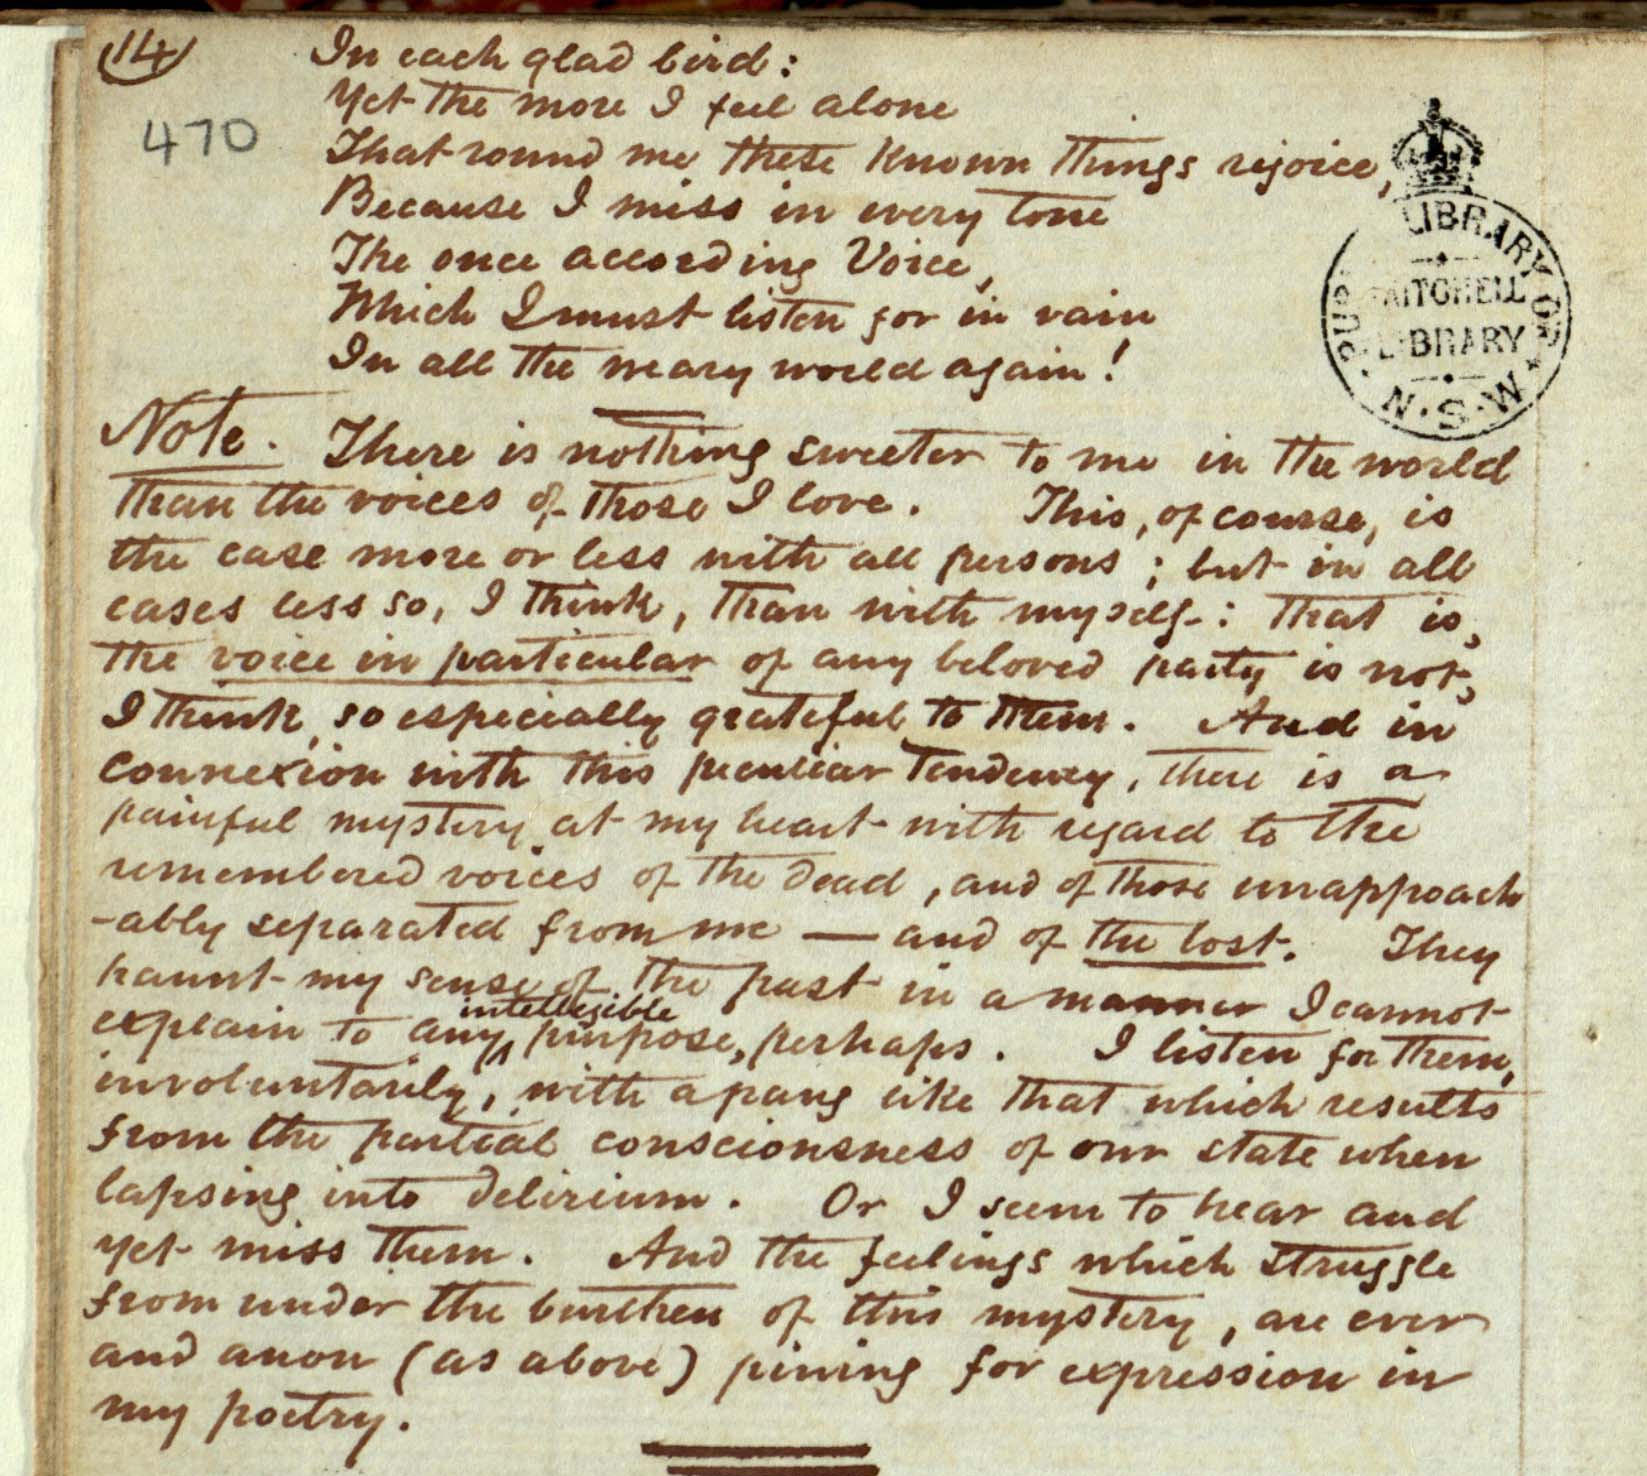 14
In each glad bird:
470
Yet the more I feel alone
That round me these known things rejoice,
Because I miss in every tone
The once according Voice,
Which I must listen for in vain
In all the weary world again!
PUB LIBRARY OF N.S.W
MITCHELL
LIBRARY
Note. There is nothing sweeter to me in the world
than the voices of those I love. This, of course, is
the case more or less with all persons; but in all
cases less so, I think, than with myself: that is,
the voice in particular of any beloved party is not,
I think, so especially grateful to them. And in
connexion with this peculiar tendency, there is a
painful mystery at my heart with regard to the
remembered voices of the dead, and of those unapproach
-ably separated from me — and of the lost. They
haunt my sense of the past in a manner I cannot
explain to any intellegible purpose, perhaps. I listen for them,
involuntarily, with a pang like that which results
from the partial consciousness of our state when
lapsing into delirium. Or I seem to hear and
yet miss them. And the feelings which struggle
from under the burthen of this mystery, are ever
and anon (as above) pining for expression in
my poetry.